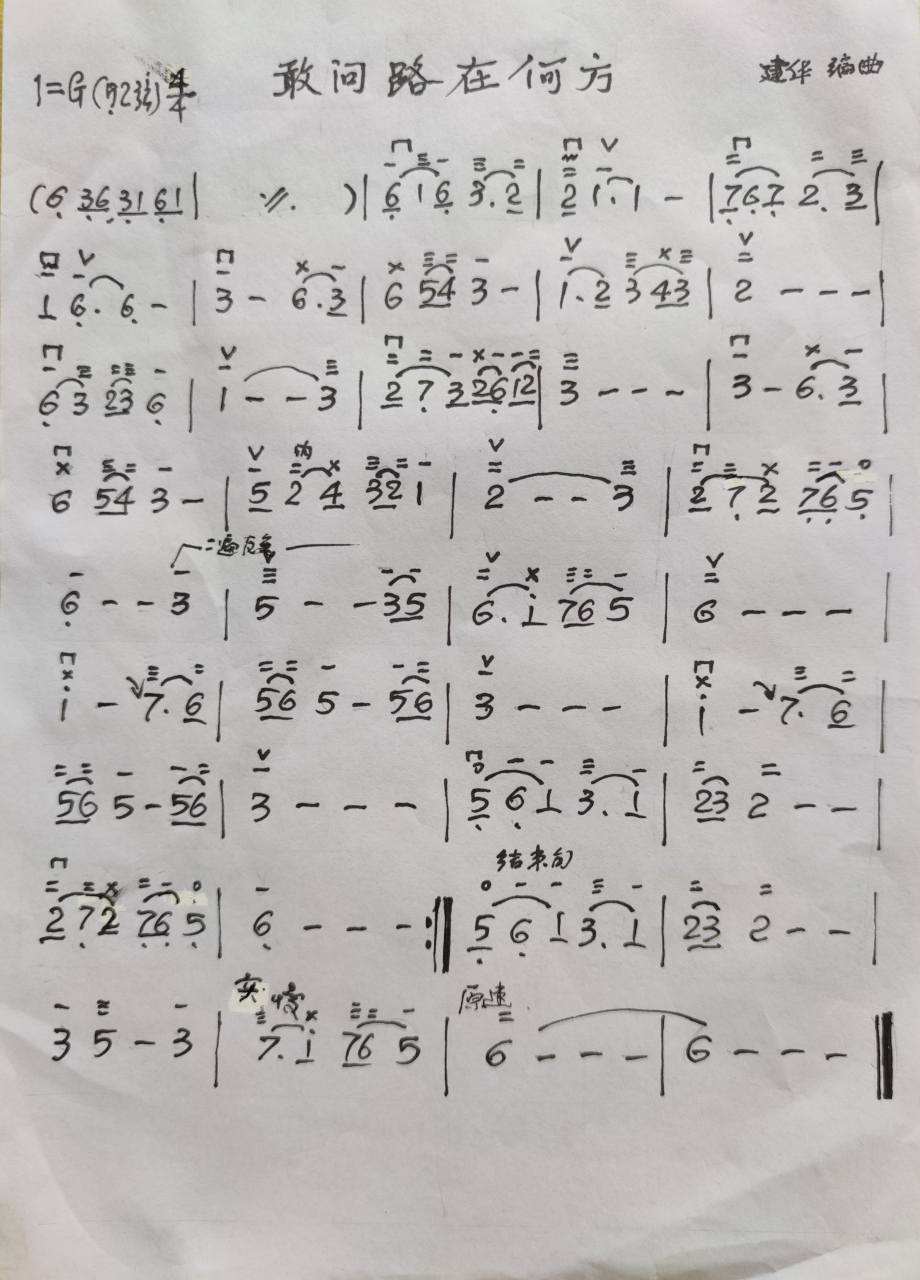 敢问路在何方
1=G(5̣2弦) 4/4
建华 编曲
(6̣ 3 6̣ 3 1 6̣ 1 | ⁒ ) | 6̣ 1 6̣ 3. 2 | 2 1. 1 - | 7̣ 6̣ 7̣ 2. 3 |
1 6̣. 6̣ - | 3 - 6. 3 | 6 54 3 - | 1. 2 3 43 | 2 - - - |
6̣ 3 23 6̣ | 1 - - 3 | 2 7̣ 3 26̣ 12 | 3 - - - | 3 - 6. 3 |
6 54 3 - | 5 2 4 32 1 | 2 - - 3 | 2 7̣ 2 7̣6̣ 5̣ |
二遍反复
6̣ - - 3 | 5 - - 35 | 6. i 76 5 | 6 - - - |
i - 7. 6 | 56 5 - 56 | 3 - - - | i - 7. 6 |
56 5 - 56 | 3 - - - | 5̣ 6̣ 1 3. 1 | 23 2 - - |
结束句
2 7̣ 2 7̣6̣ 5̣ | 6̣ - - - :|| 5̣ 6̣ 1 3. 1 | 23 2 - - |
突慢 原速
3 5 - 3 | 7. i 76 5 | 6 - - - | 6 - - - ||